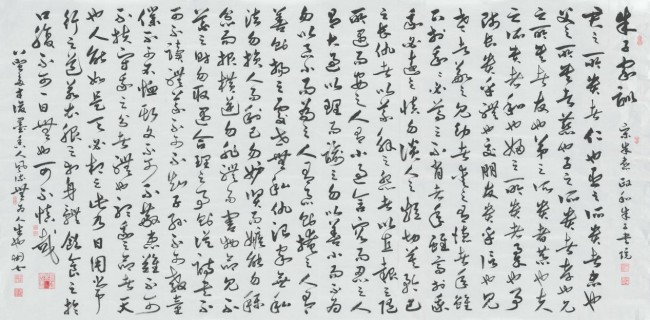 朱子家訓
君之所貴者仁也臣之所貴者忠也
父之所貴者慈也子之所貴者孝也兄
之所貴者友也弟之所貴者恭也夫
之所貴者和也婦之所貴者柔也事
師長貴乎禮也交朋友貴乎信也見
老者敬之見幼者愛之有德者年雖
下於我我必尊之不肖者年雖高於我
我必遠之慎勿談人之短切莫矜己
之長仇者以義解之怨者以直報之隨
所遇而安之人有小過含容而忍之人
有大過以理而諭之勿以善小而不為
勿以惡小而為之人有惡則掩之人有
善則揚之處世無私仇治家無私
法勿損人而利己勿妒賢而嫉能勿稱
忿而報橫逆勿非禮而害物命見不
義之財勿取遇合理之事則從詩書不
可不讀禮義不可不知子孫不可不教童
僕不可不恤斯文不可不敬患難不可
不扶守我之分者禮也聽我之命者天
也人能如是天必相之此乃日用常
行之道若衣服之於身體飲食之於
口腹不可一日無也可不慎哉